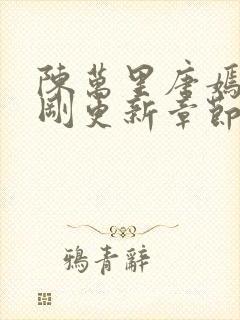 陳萬里唐嫣
剛更新章節
鴉青辭